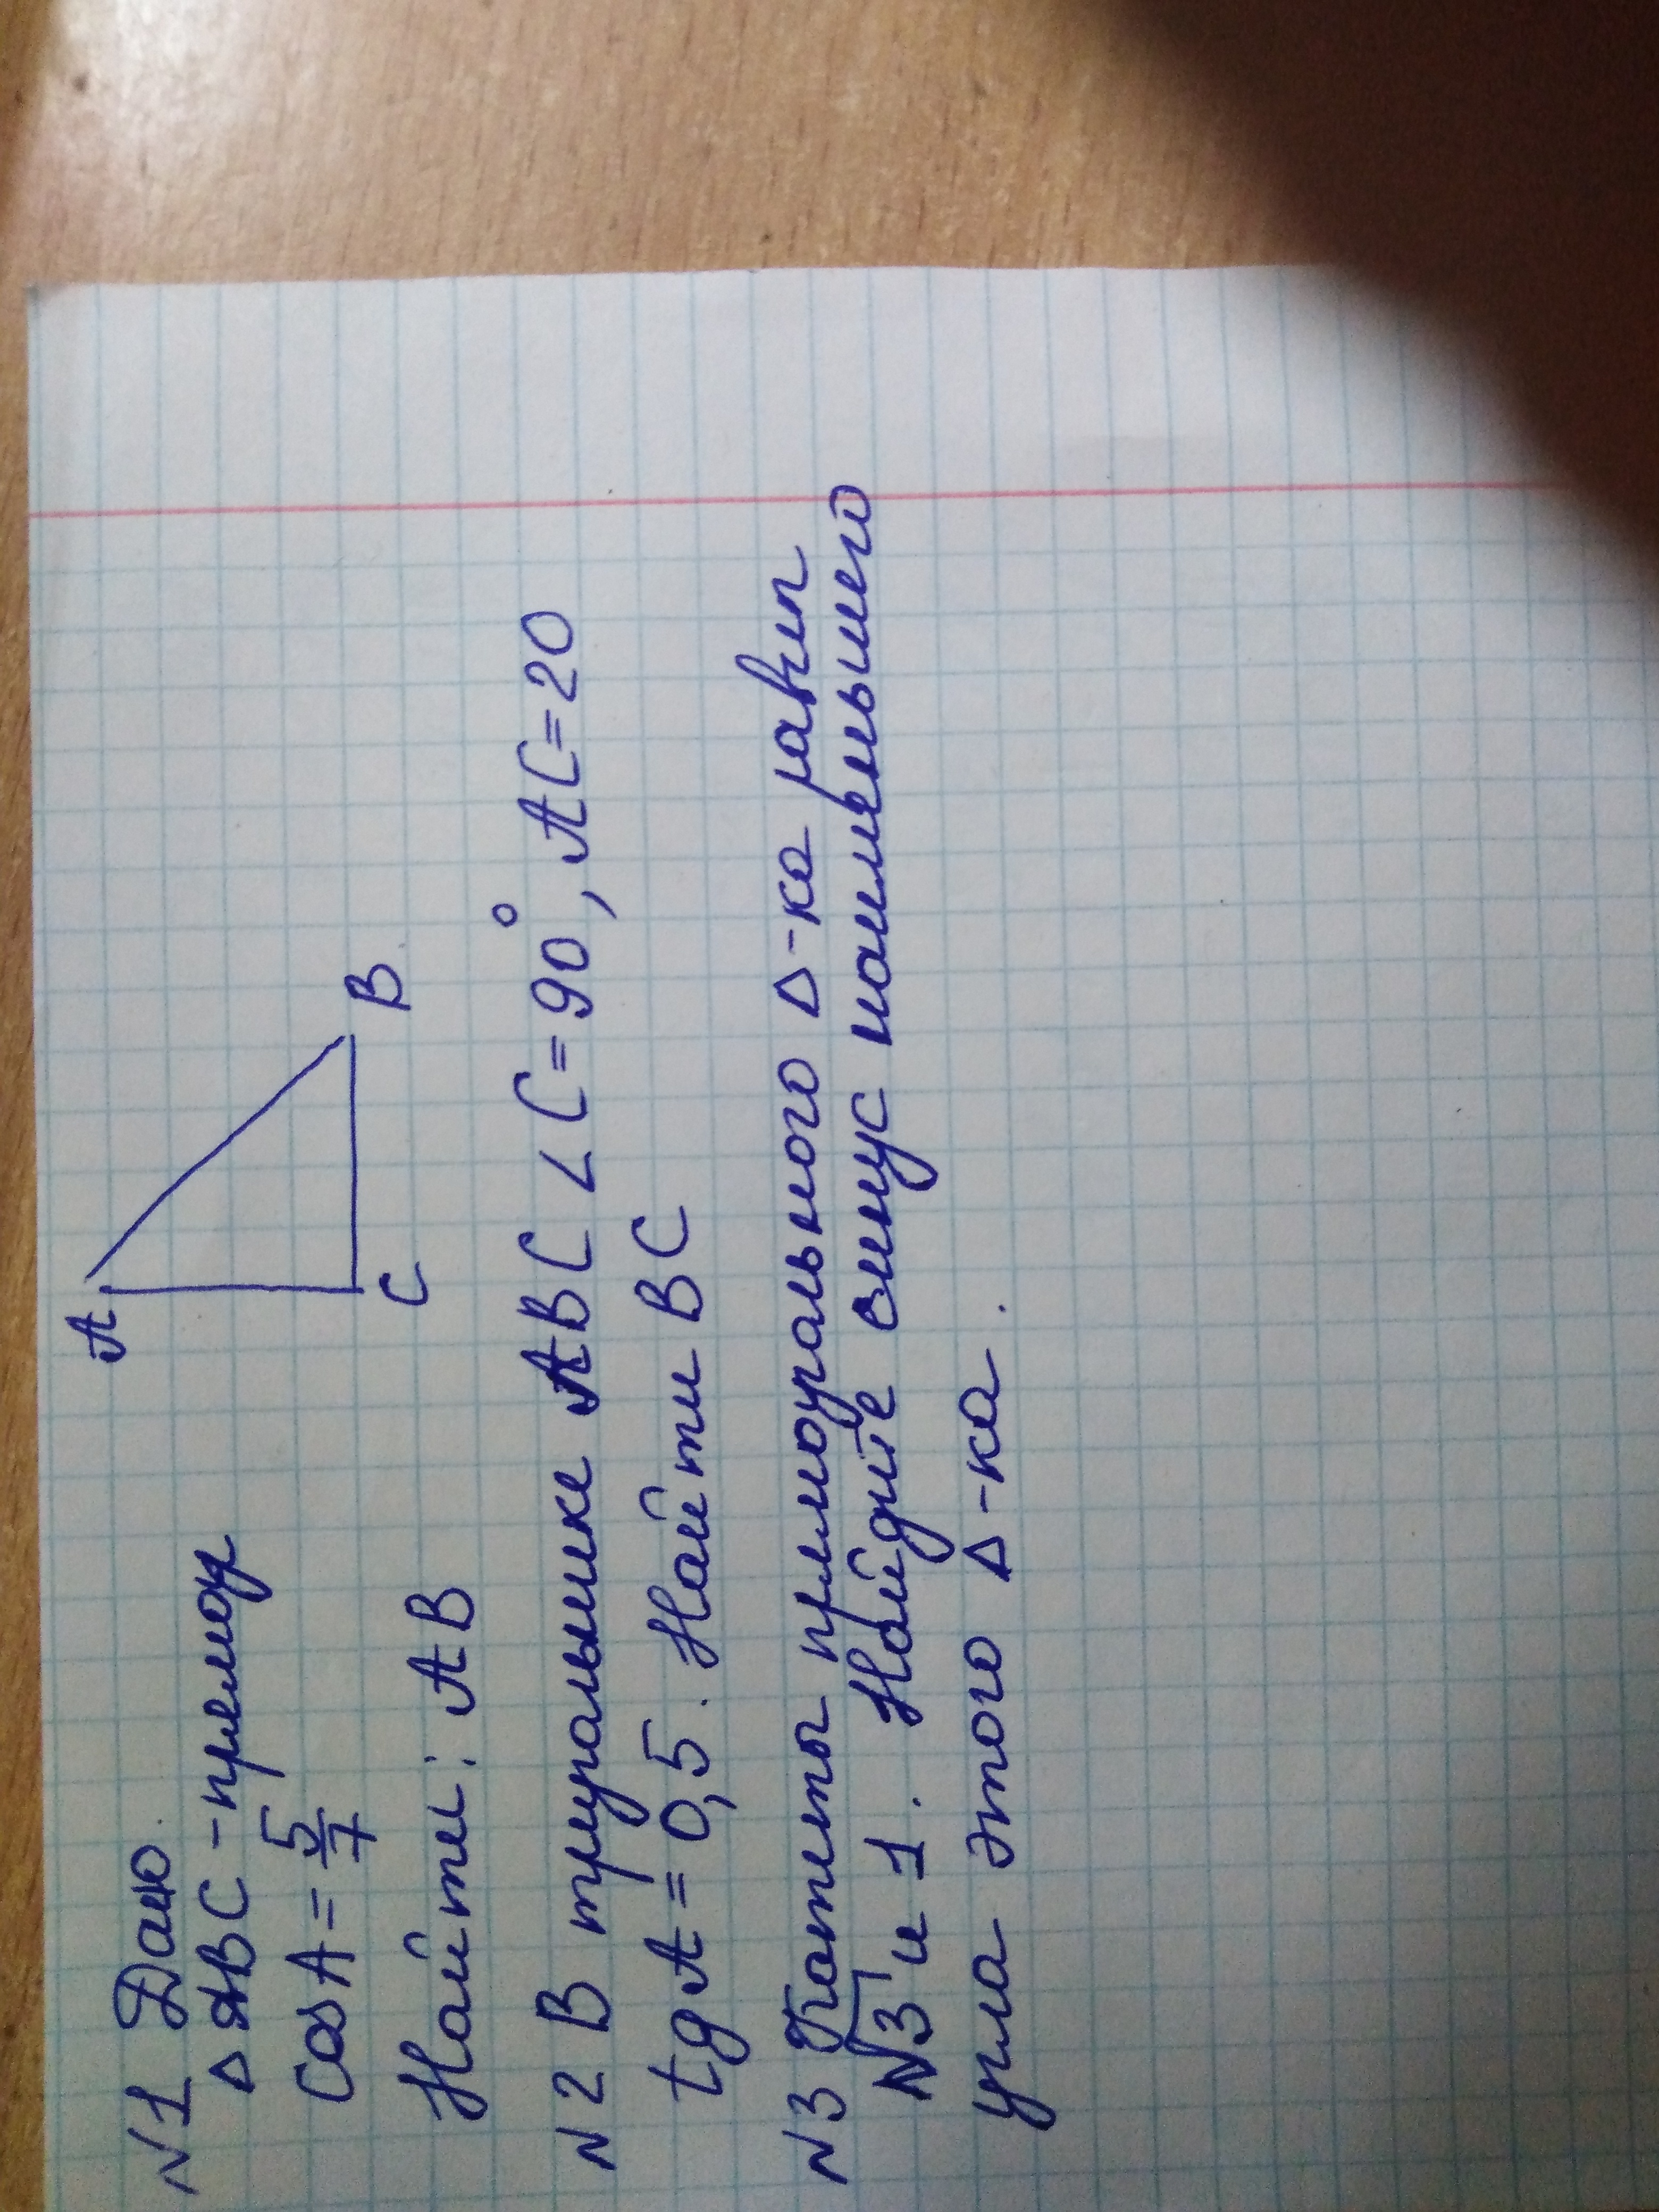 N1 Дано
Δ ABC - прямоуг
A
C
B
cos A = 5/7
Найти: AB
N2 В треугольнике ABC ∠C=90°, AC=20
tg A = 0,5. Найти BC
N3 Катеты прямоугольного Δ-ка равны
√3 и 1. Найдите синус наименьшего
угла этого Δ-ка.